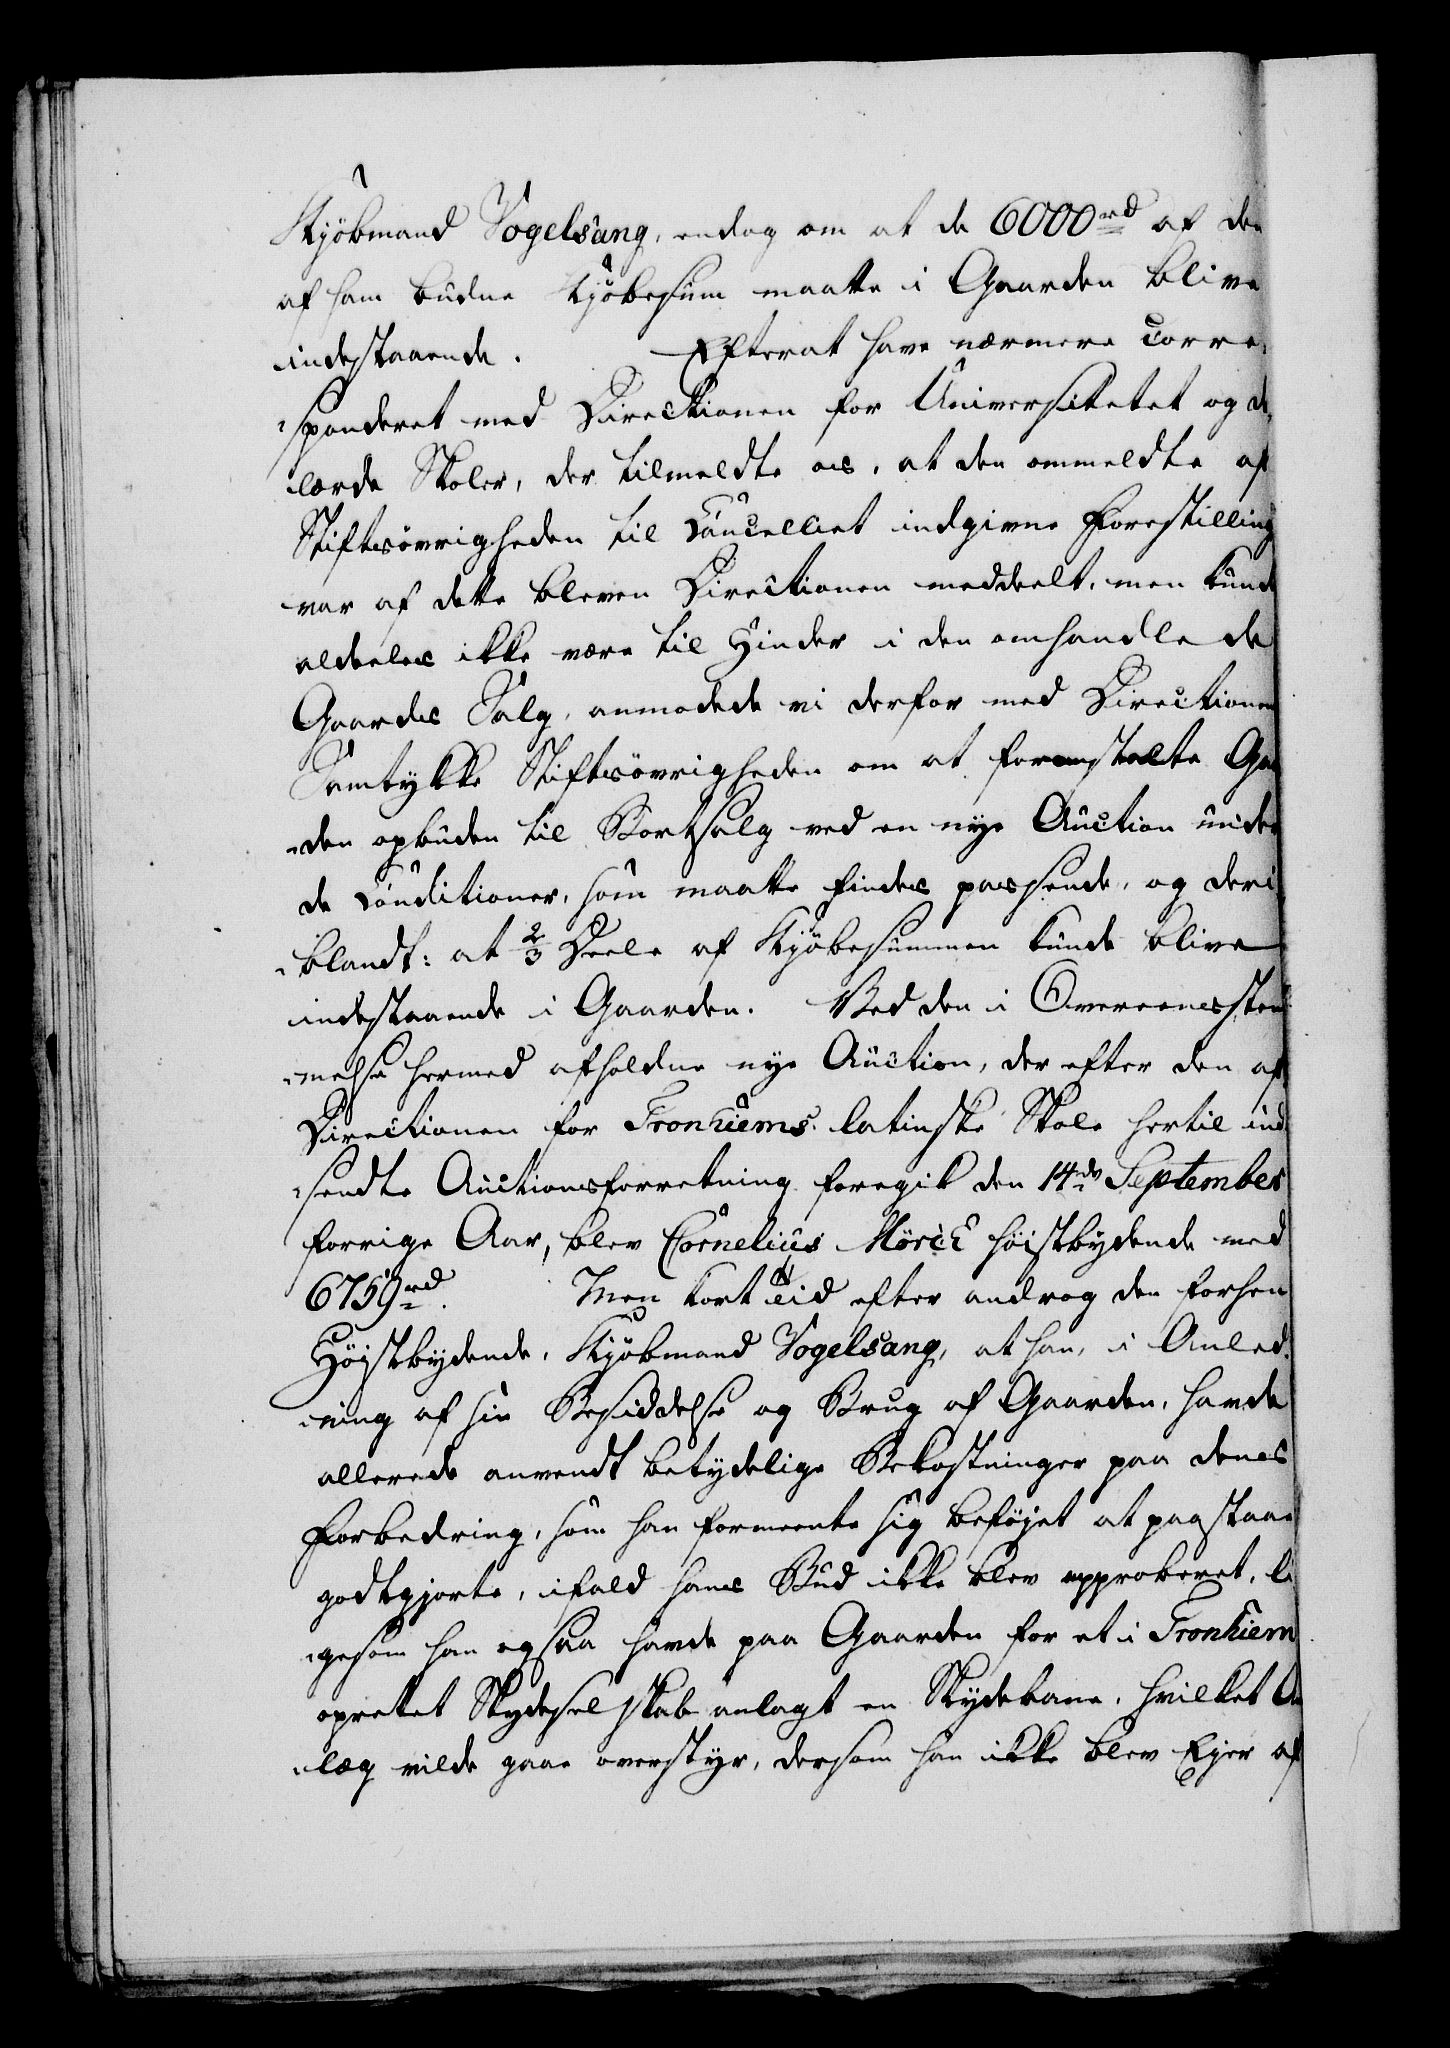 Kjöbmand Vogelsang, endog om at de 6000rd af den
af ham budne Kjöbesum maatte i Gaarden blive
indestaaende. Efterat have nærmere corre-
sponderet med Directionen for Universitetet og de
lærde Skoler, der tilmeldte os, at den ommeldte af
Stiftsövrigheden til Cancelliet indgivne Forestilling
var af dette bleven Directionen meddeelt, men kunde
aldeles ikke være til Hinder i den omhandlede
Gaardes Salg, anmodede vi derfor med Directionens
Samtykke Stiftsövrigheden om at foranstalte Gaar
den opbuden til Bortsalg ved en nye Auction under
de Conditioner, som maatte findes passende, og deri
blandt: at 2/3 Deele af Kjöbesummen kunde blive
indestaaende i Gaarden. Ved den i Overeensstem
melse hermed afholdne nye Auction, der efter den af
Directionen for Tronhiems latinske Skole hertil ind
sendte Auctionsforretning foregik den 14de September
forrige Aar, blev Cornelius Mörch höistbydende med
6759rd. Men kort Tid efter androg den forhen
Höistbydende, Kjöbmand Vogelsang, at han, i Anled-
ning af sin Besiddelse og Brug af Gaarden, havde
allerede anvendt betydelige Bekostninger paa denes
Forbedring, som han formeente sig beföjet at paastaae
godtgjorte, ifald hans Bud ikke blev approberet, li
gesom han ogsaa havde paa Gaarden for et i Tronhiem
oprettet Skydeselskab anlagt en Skydebane, hvilket An
læg vilde gaae overstyr, dersom han ikke blev Ejer af